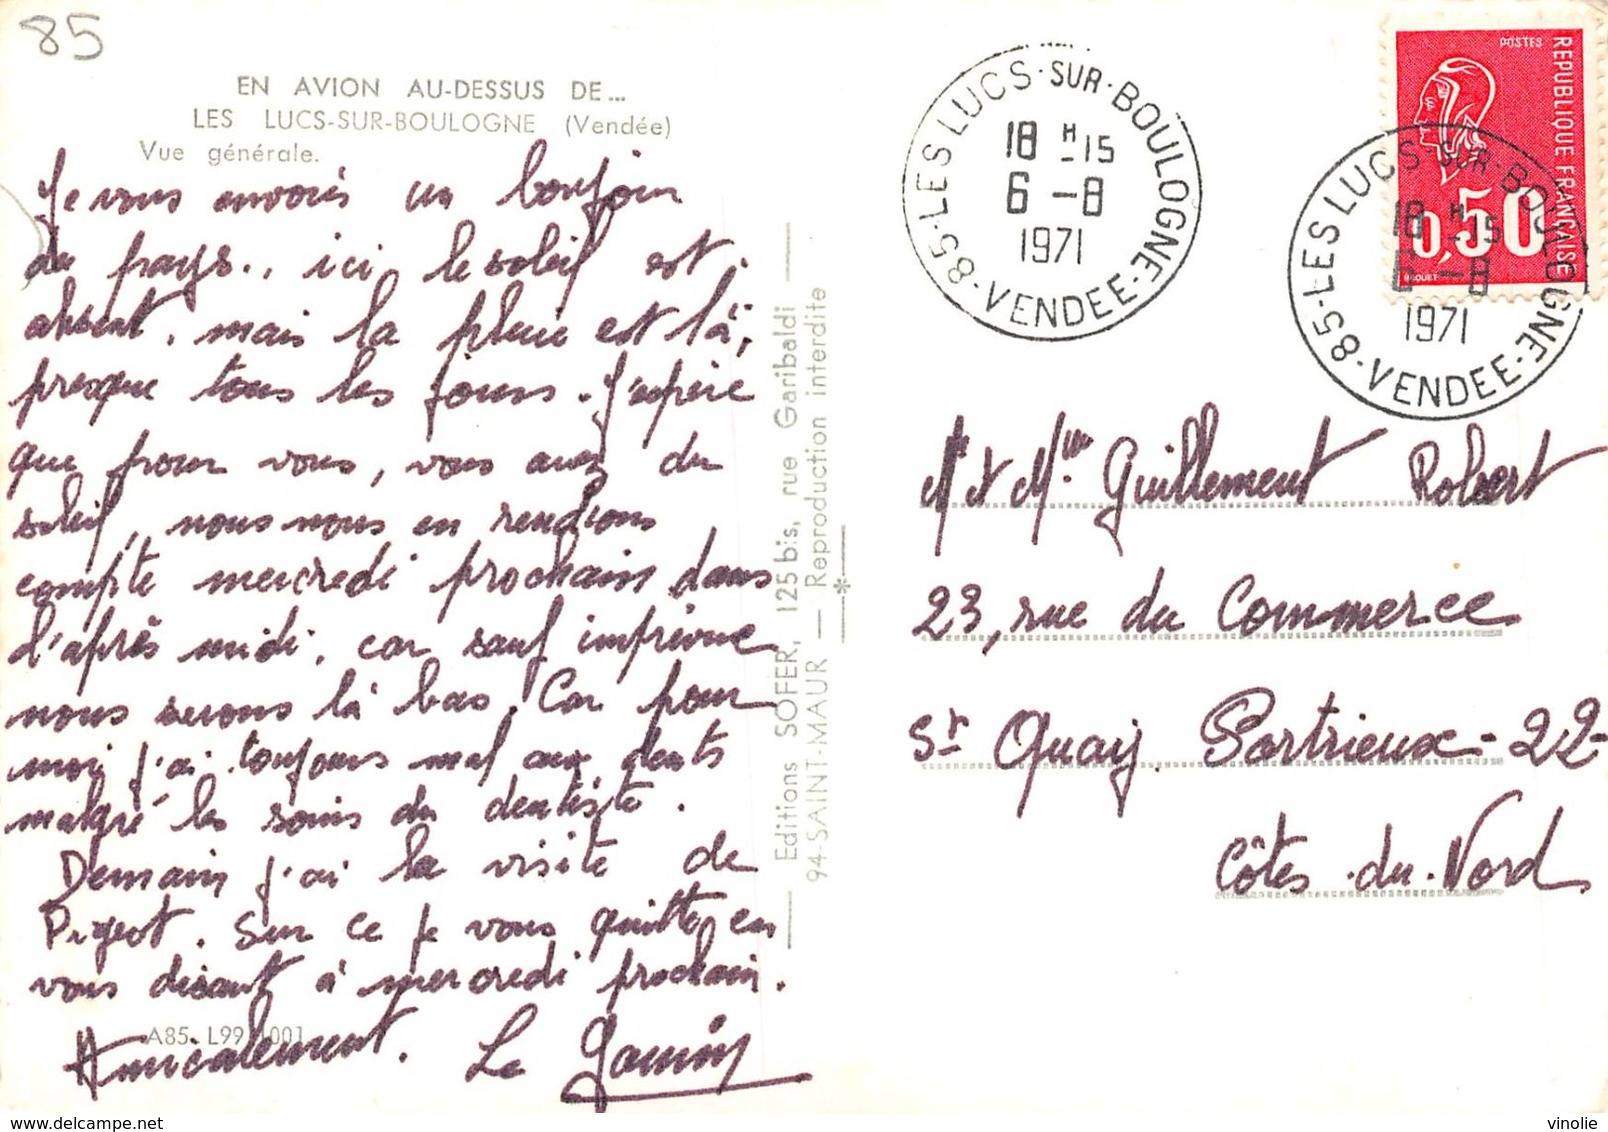 85
EN AVION AU-DESSUS DE...
LES LUCS-SUR-BOULOGNE (Vendée)
Vue générale.
Je vous envoies un bonjour
du pays., ici le soleil est
absent, mais la pluie est là,
presque tous les jours. J'espère
que pour vous, vous avez du
soleil, nous nous en rendrons
compte mercredi prochain dans
l'après midi, car sauf imprévue
nous serons là bas. Car pour
moi j'ai toujours mal aux dents
malgré les soins du dentiste.
Demain j'ai la visite de
Pigeot. Sur ce je vous quitte en
vous disant à mercredi prochain.
Amicalement. Le
A85 L99 1001
Editions SOFER, 125 bis, rue Garibaldi
94-SAINT-MAUR — Reproduction interdite
*
85-LES LUCS-SUR-BOULOGNE-VENDEE
18 H -15
6 -8
1971
POSTES
REPUBLIQUE FRANÇAISE
0,50
BEQUET
85-LES LUCS-SUR-BOULOGNE-VENDEE
18 H -15
6 -8
1971
Mr et Mme Guillement Robert
23, rue du Commerce
St Quay Portrieux - 22-
Côtes-du-Nord
vinolie - delcampe.net